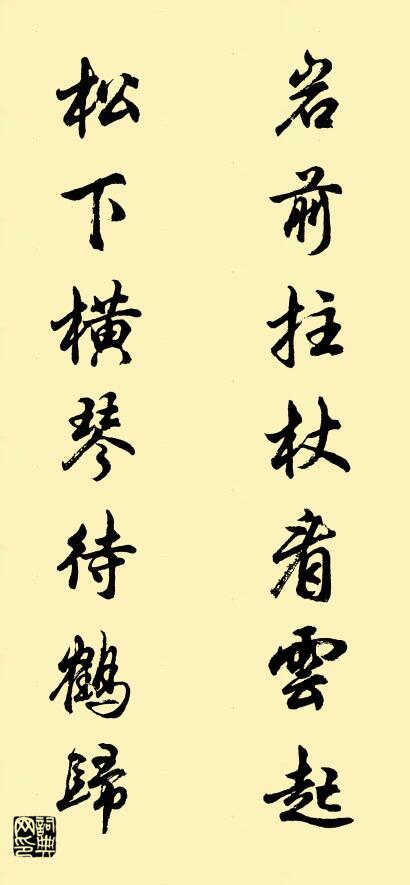 岩前拄杖看雲起
松下橫琴待鶴歸
詞典網印